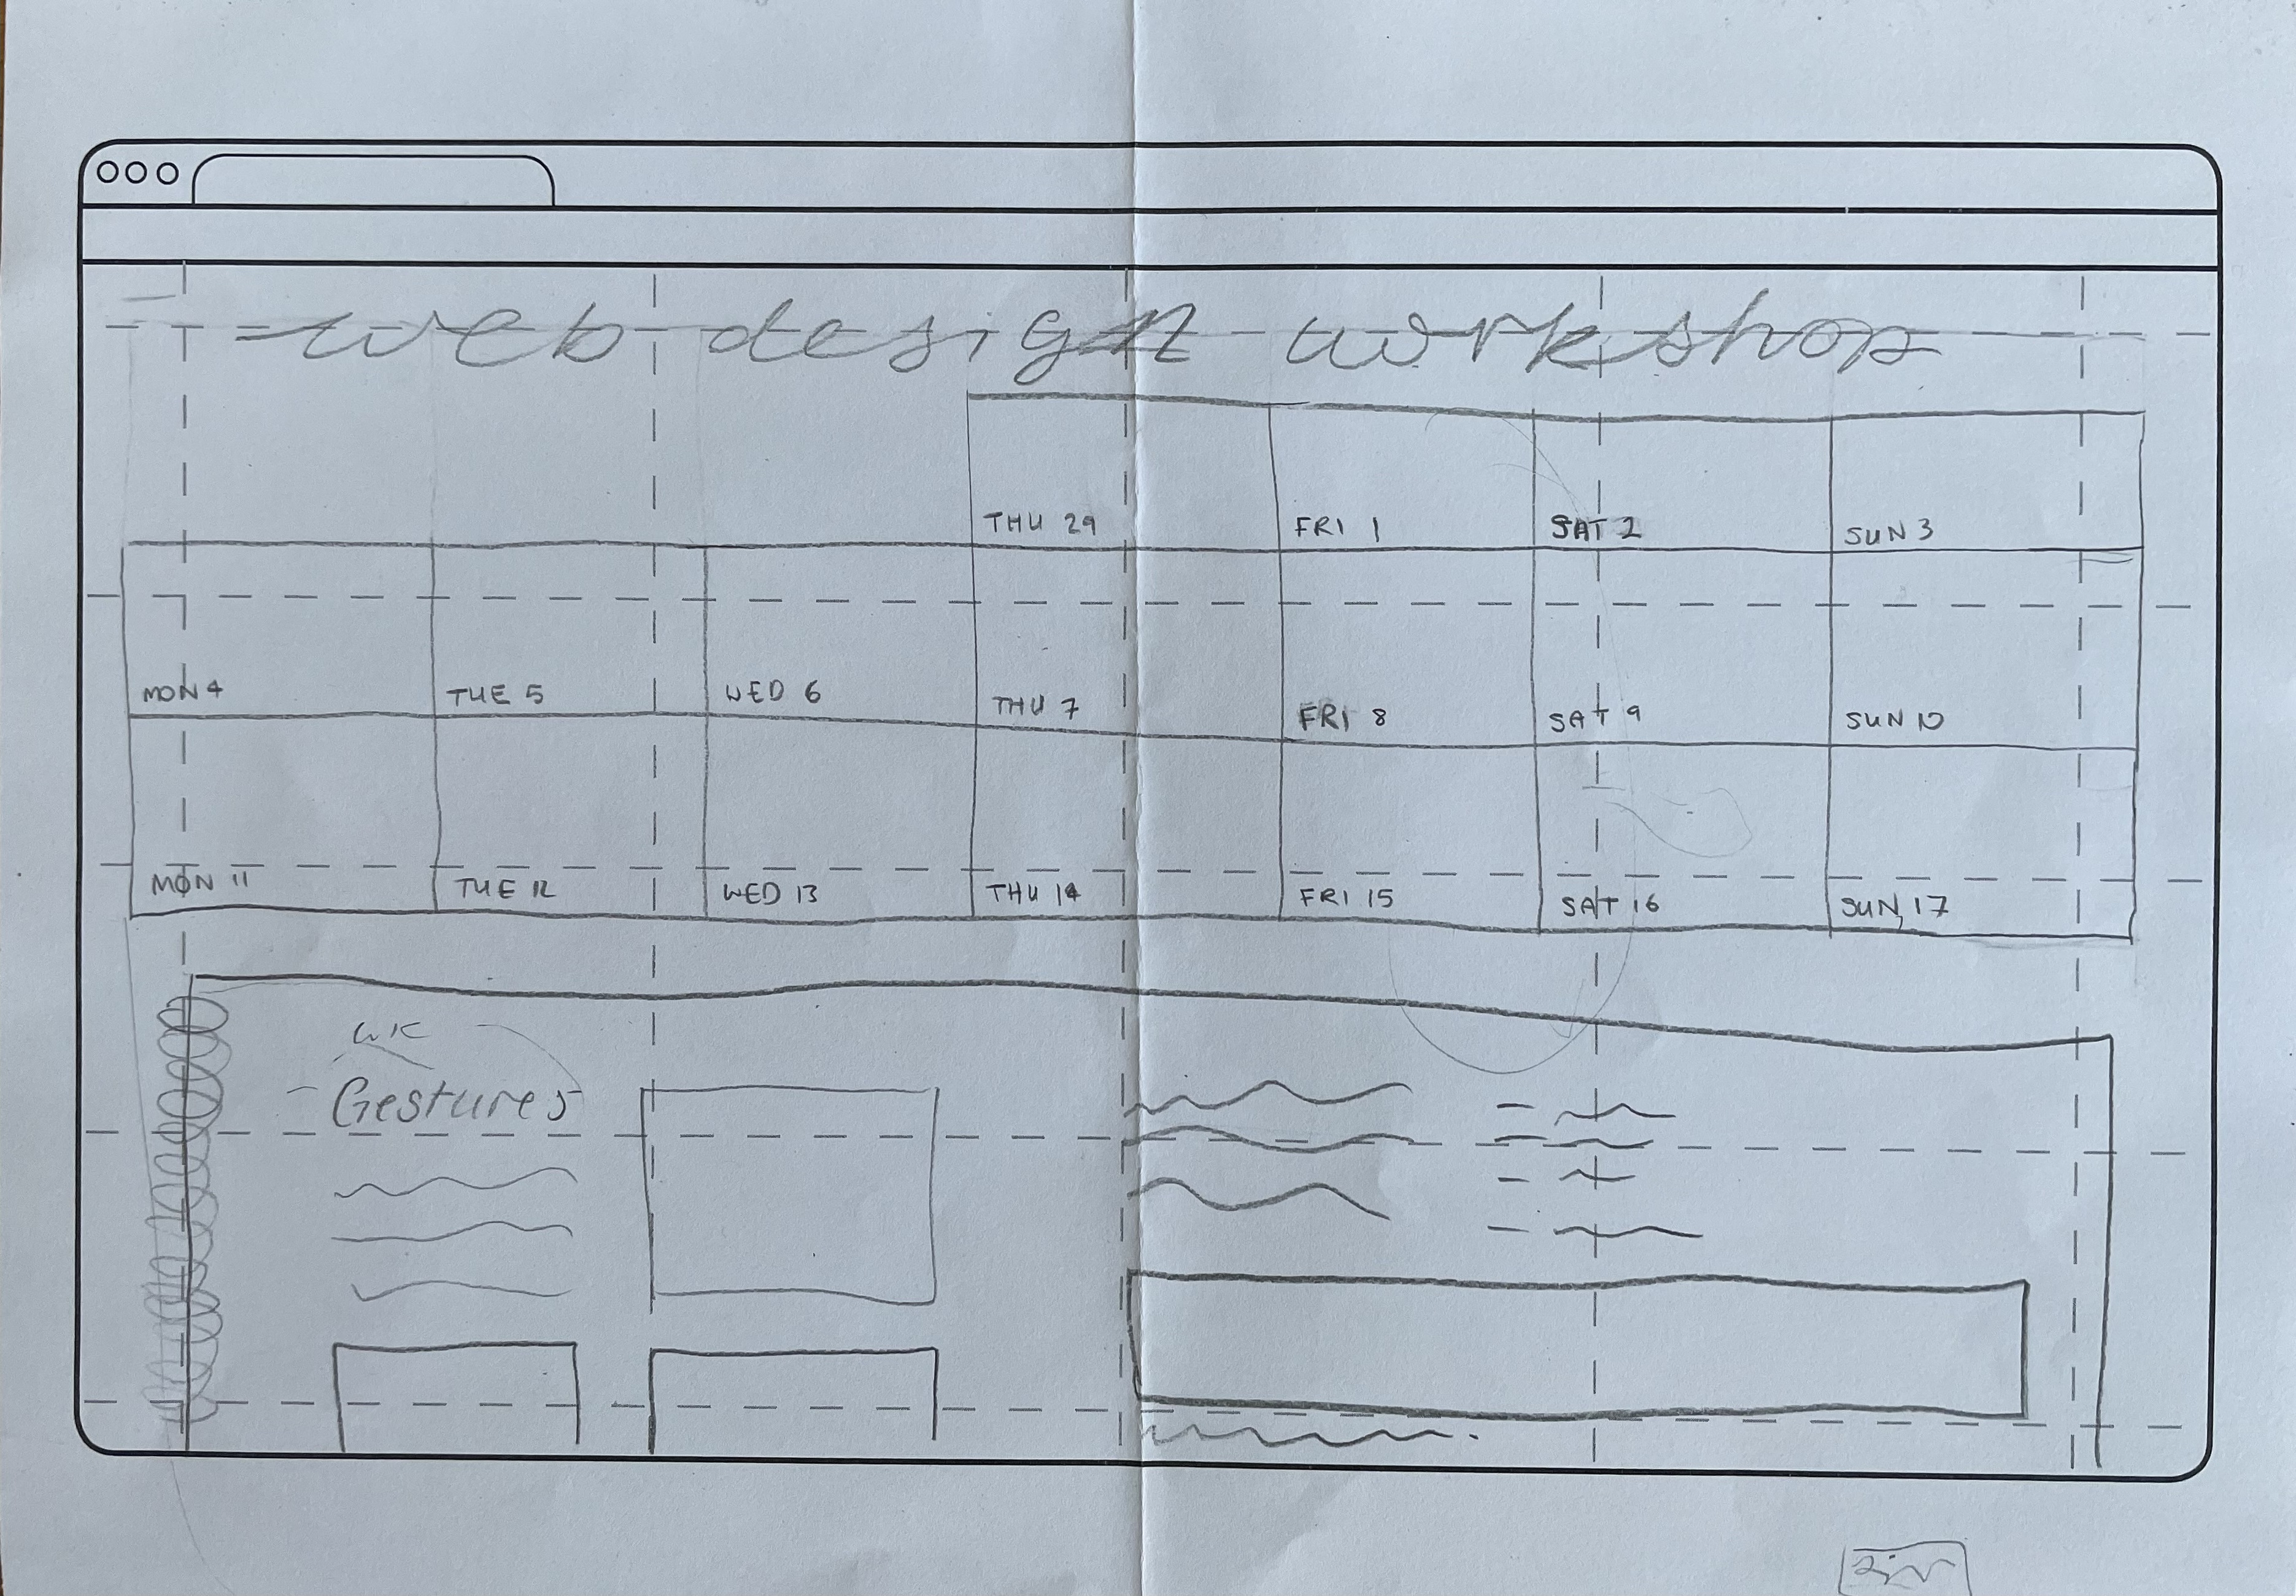 web design workshop
THU 29 FRI 1 SAT 2 SUN 3
MON 4 TUE 5 WED 6 THU 7 FRI 8 SAT 9 SUN 10
MON 11 TUE 12 WED 13 THU 14 FRI 15 SAT 16 SUN 17
WK
Gestures